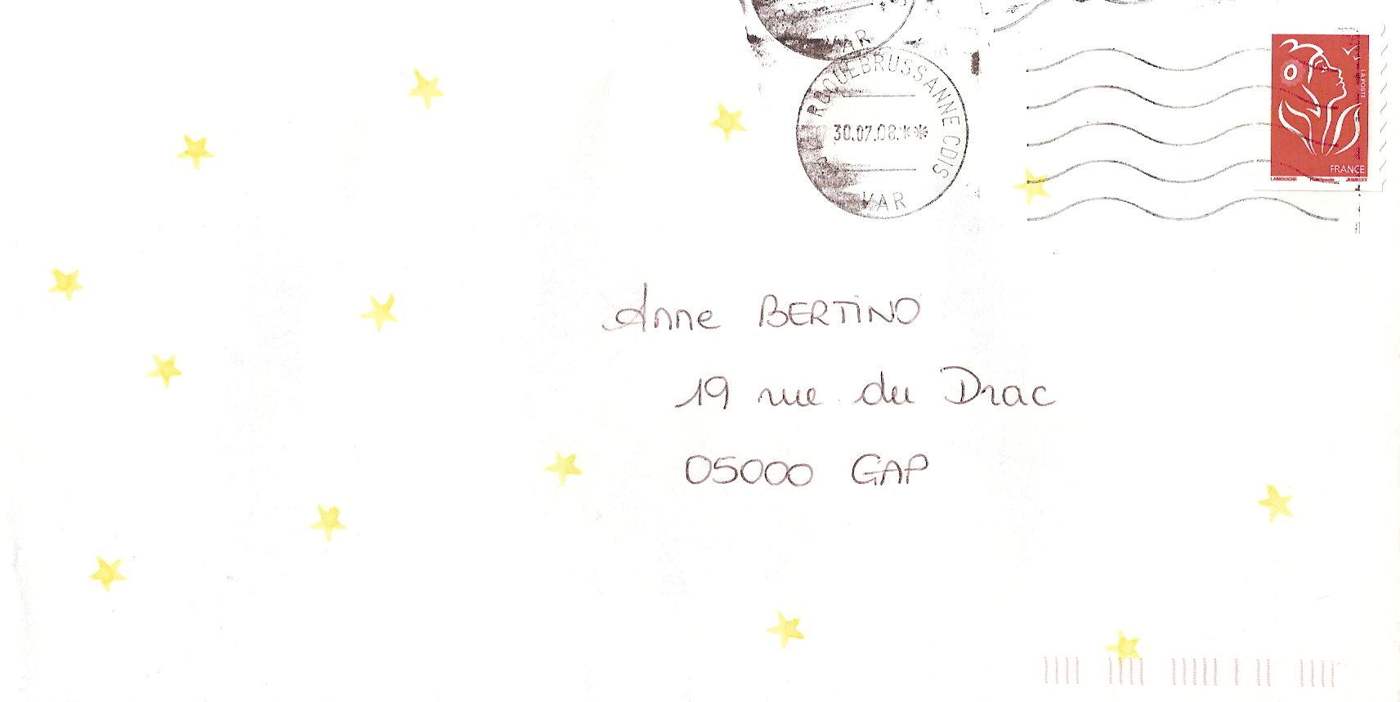 VAR
ROQUEBRUSSANNE CDIS
30.07.08.**
VAR
LA POSTE
FRANCE
LAMOUCHE
Anne BERTINO
19 rue du Drac
05000 GAP